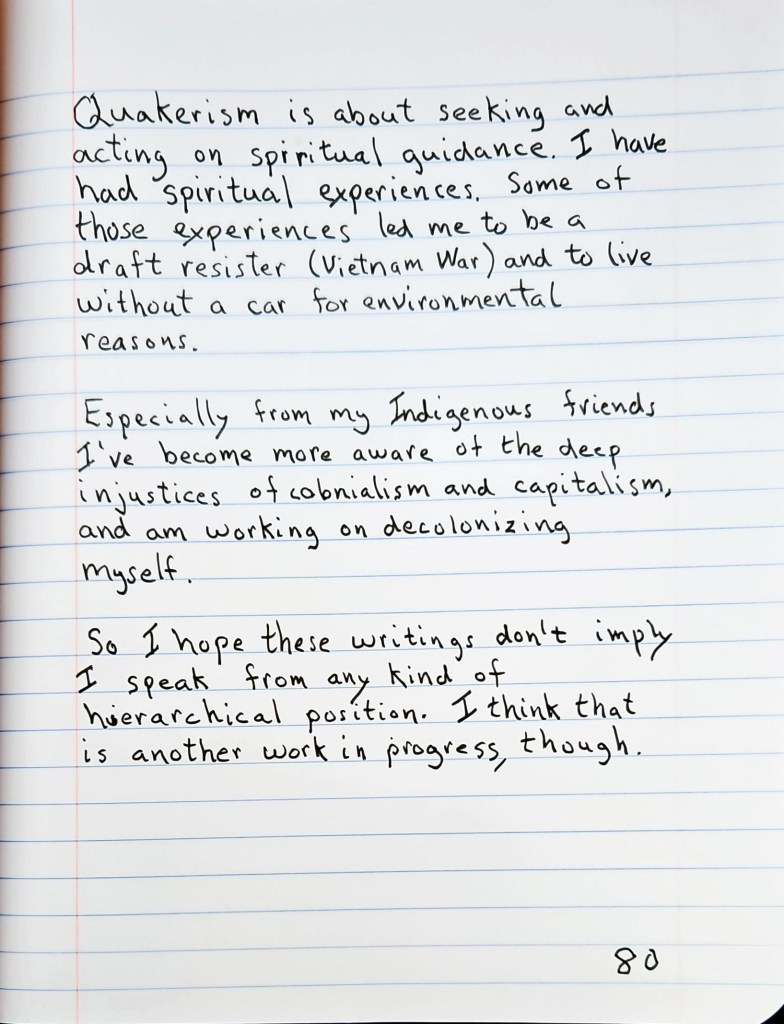 Quakerism is about seeking and
acting on spiritual guidance. I have
had spiritual experiences. Some of
those experiences led me to be a
draft resister (Vietnam War) and to live
without a car for environmental
reasons.
Especially from my Indigenous friends
I've become more aware of the deep
injustices of colonialism and capitalism,
and am working on decolonizing
myself.
So I hope these writings don't imply
I speak from any kind of
hierarchical position. I think that
is another work in progress, though.
80